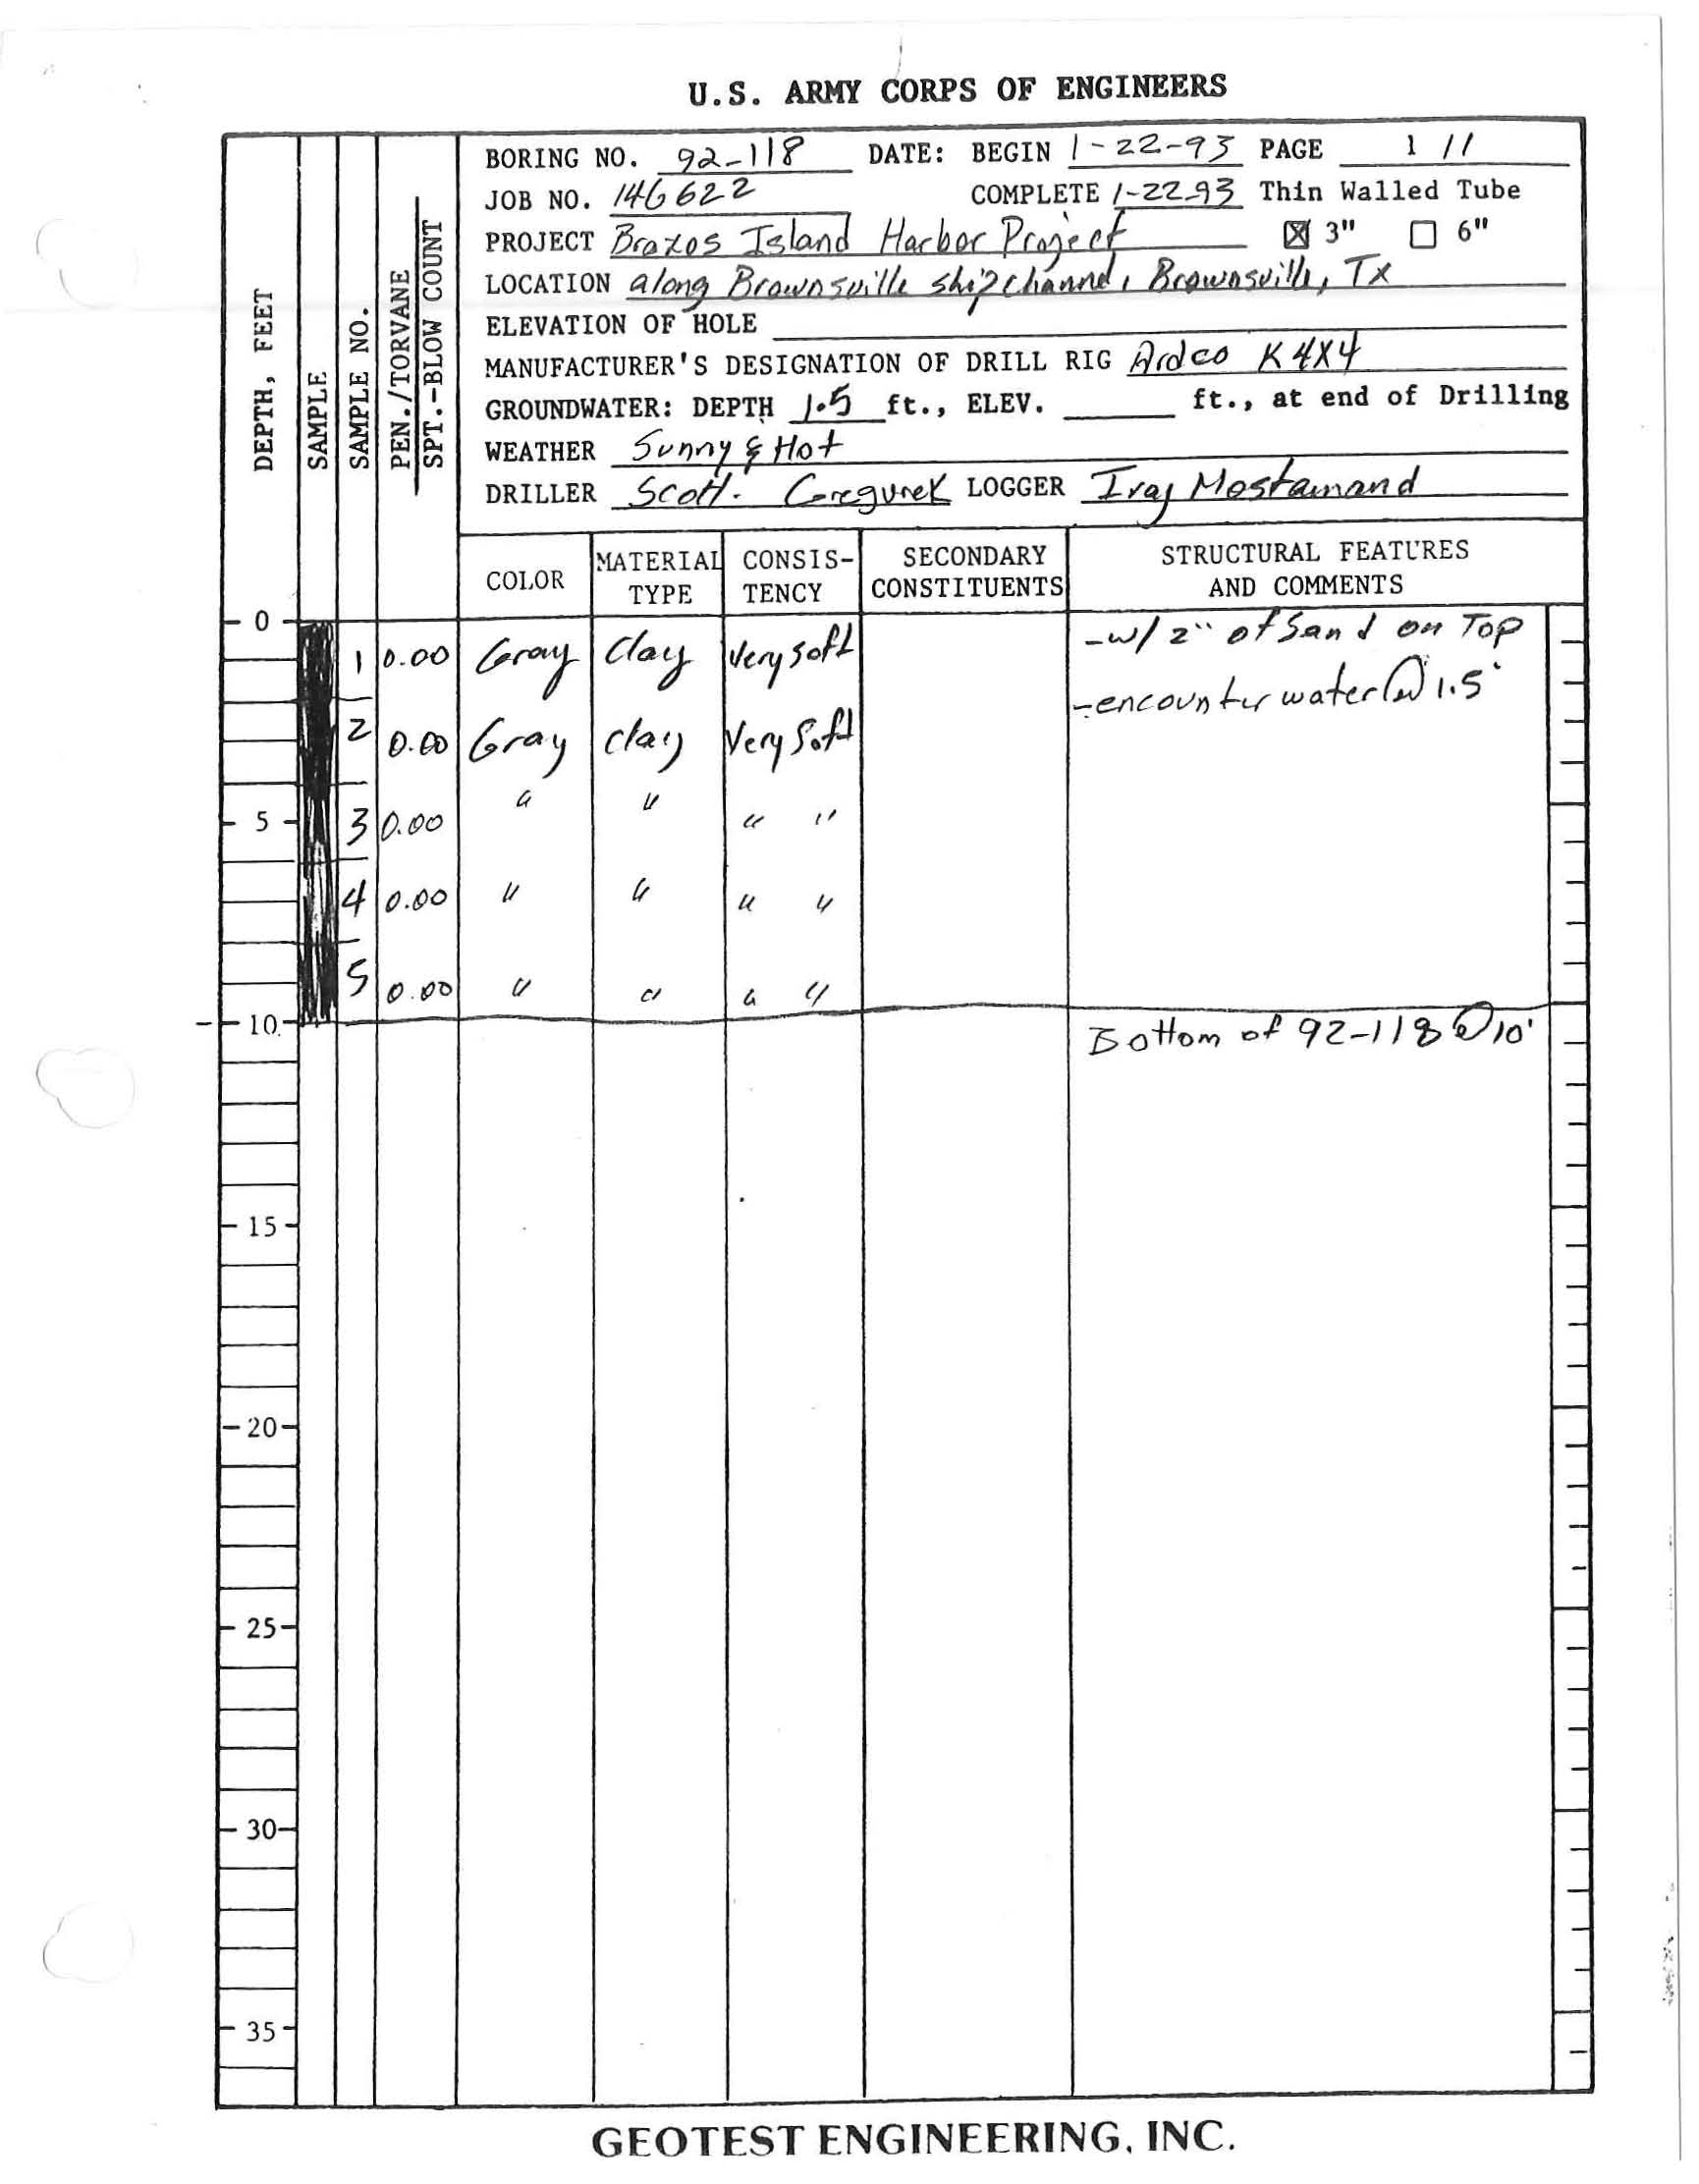 U.S. ARMY CORPS OF ENGINEERS
BORING NO. 92-118 DATE: BEGIN 1-22-93 PAGE 1 / 1
JOB NO. 146622 COMPLETE 1-22-93 Thin Walled Tube
PROJECT Brazos Island Harbor Project ☒ 3" ☐ 6"
LOCATION along Brownsville ship channel, Brownsville, Tx
ELEVATION OF HOLE
MANUFACTURER'S DESIGNATION OF DRILL RIG Ardco K 4X4
GROUNDWATER: DEPTH 1.5 ft., ELEV. ft., at end of Drilling
WEATHER Sunny & Hot
DRILLER Scott LOGGER Iraj Mostamand
DEPTH, FEET
SAMPLE
SAMPLE NO.
PEN./TORVANE
SPT.-BLOW COUNT
COLOR MATERIAL TYPE CONSIS-TENCY SECONDARY CONSTITUENTS STRUCTURAL FEATURES AND COMMENTS
0
1 0.00 Gray Clay Very soft -w/ 2" of Sand on Top
-encounter water @ 1.5'
2 0.00 Gray clay Very Soft
5 3 0.00 " " " "
4 0.00 " " " "
5 0.00 " " " "
10 Bottom of 92-118 @ 10'
15
20
25
30
35
GEOTEST ENGINEERING, INC.